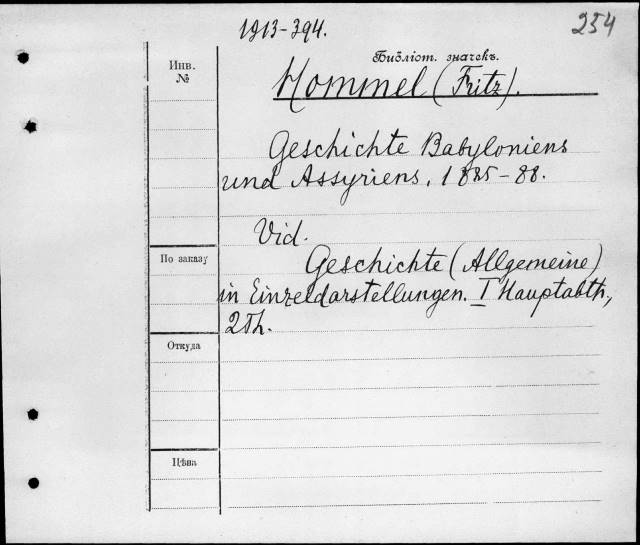 1913-394.
254
Библіот. значекъ.
Инв.
№
Hommel (Fritz).
Geschichte Babyloniens
und Assyriens, 1885-88.
Vid.
По заказу
Geschichte (Allgemeine)
in Einzeldarstellungen. I Hauptabth.,
2 Th.
Откуда
Цѣна